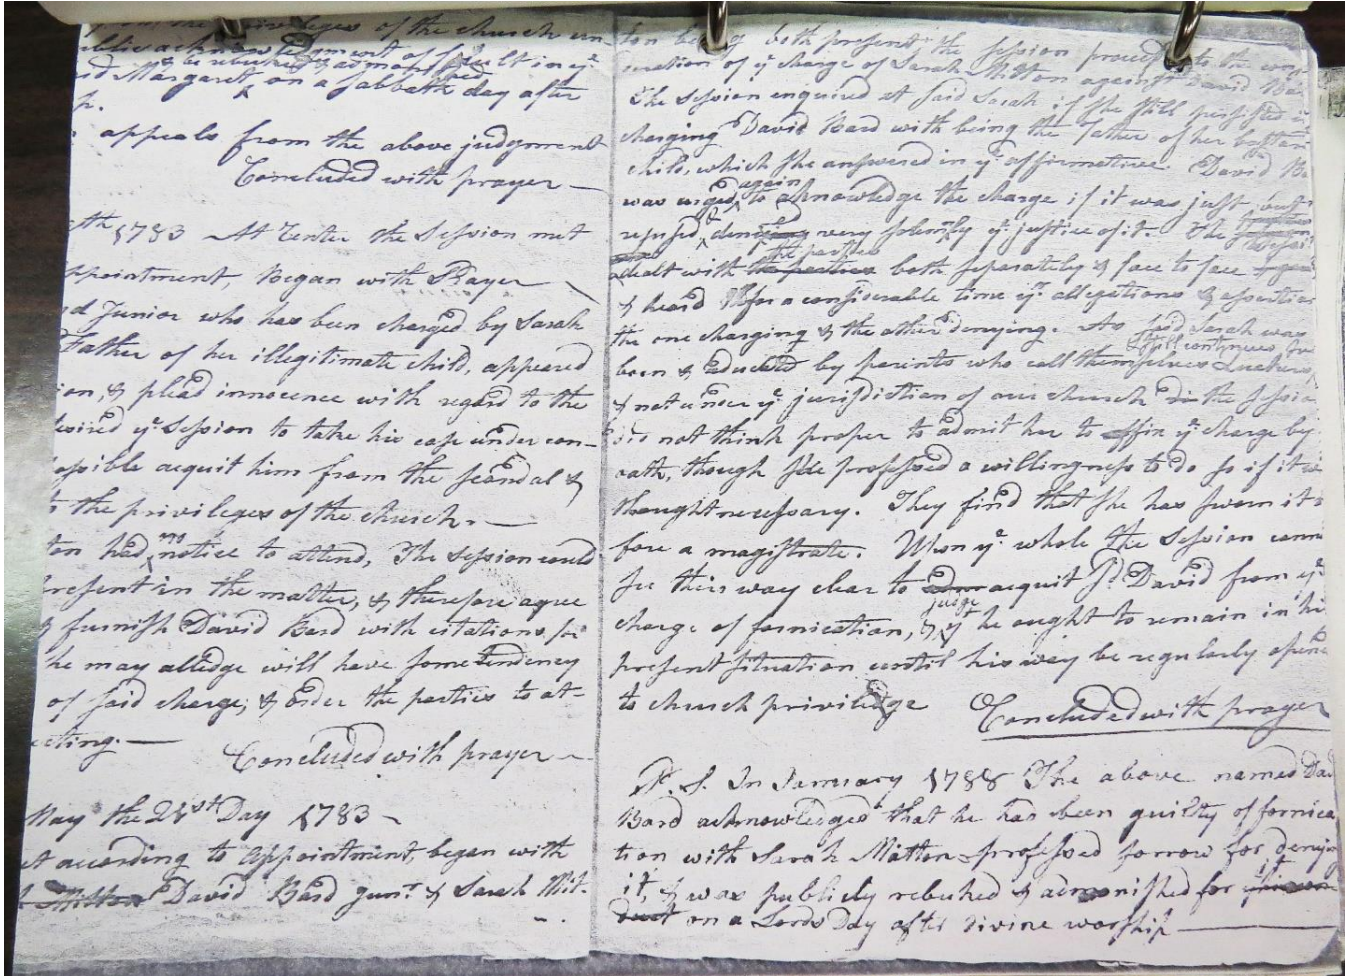 privileges of the church un-
acknowledgment of fault in ye
& be rebuked & admonished
Margaret, on a Sabbath day after
appeals from the above judgment
Concluded with prayer —
1783 At Center the Session met
appointment, Began with Prayer
Junior who has been charged by Sarah
Father of her illegitimate child, appeared
& plead innocence with regard to the
desired ye Session to take his case under con-
possible acquit him from the scandal &
the privileges of the church. —
had no notice to attend, The Session could
present in the matter, & therefore agree
furnish David Bard with citations for
he may alledge will have some tendency
of said charge; & order the parties to at-
Concluded with prayer —
May the 28st Day 1783 —
according to appointment, began with
Milton David Bard junr. & Sarah Mit-
ton being both present, the session proceed to the con-
of ye charge of Sarah Mitton against David
The Session enquired at said Sarah if she still persisted in
charging David Bard with being the father of her bastar
child, which she answered in ye affirmative. David
was urged again to acknowledge the charge if it was just but
refused, & denying very solemnly ye justice of it. The
dealt with the parties both separately & face to face
& heard for a considerable time ye allegations & assertion
the one charging & the other denying. As said Sarah was
still continues
born & educated by parents who call themselves Quakers,
& not under ye jurisdiction of our church the sessio
did not think proper to admit her to affin ye charge by
oath, though she professed a willingness to do so if it
thought necessary. They find that she has sworn it
fore a magistrate. Upon ye whole the Session cann
see their way clear to acquit sd. David from ye
charge of fornication, & judge yt he ought to remain in hi
present situation until his way be regularly opend
to church privilidge Concluded with prayer
P. S. In January 1788 The above named Da
Bard acknowledged that he has been guilty of fornica
tion with Sarah Mitton professed sorrow for denyin
it, & was publicly rebuked & admonished for
on a Lords Day after divine worship —